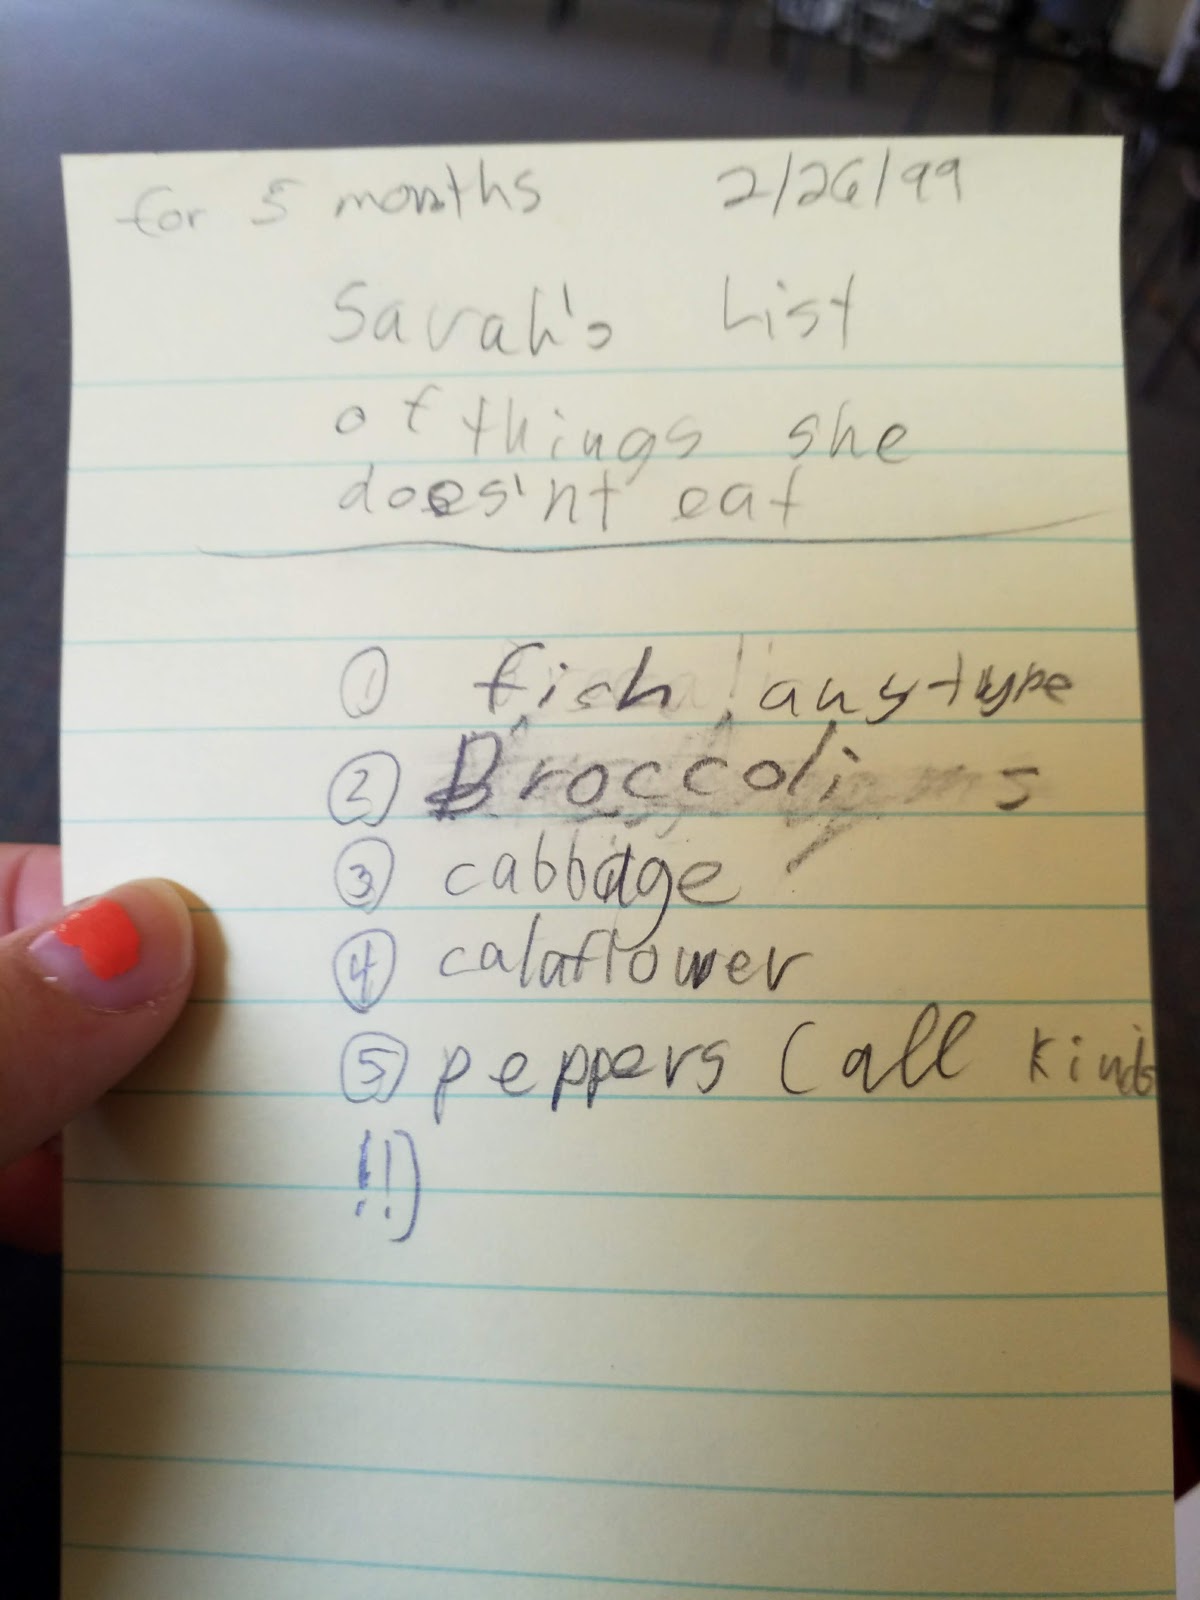 for 5 months 2/26/99
Sarah's List
of things she
does'nt eat
① fish, any type
② Broccoli
③ cabbage
④ calaflower
⑤ peppers (all kinds
!!)